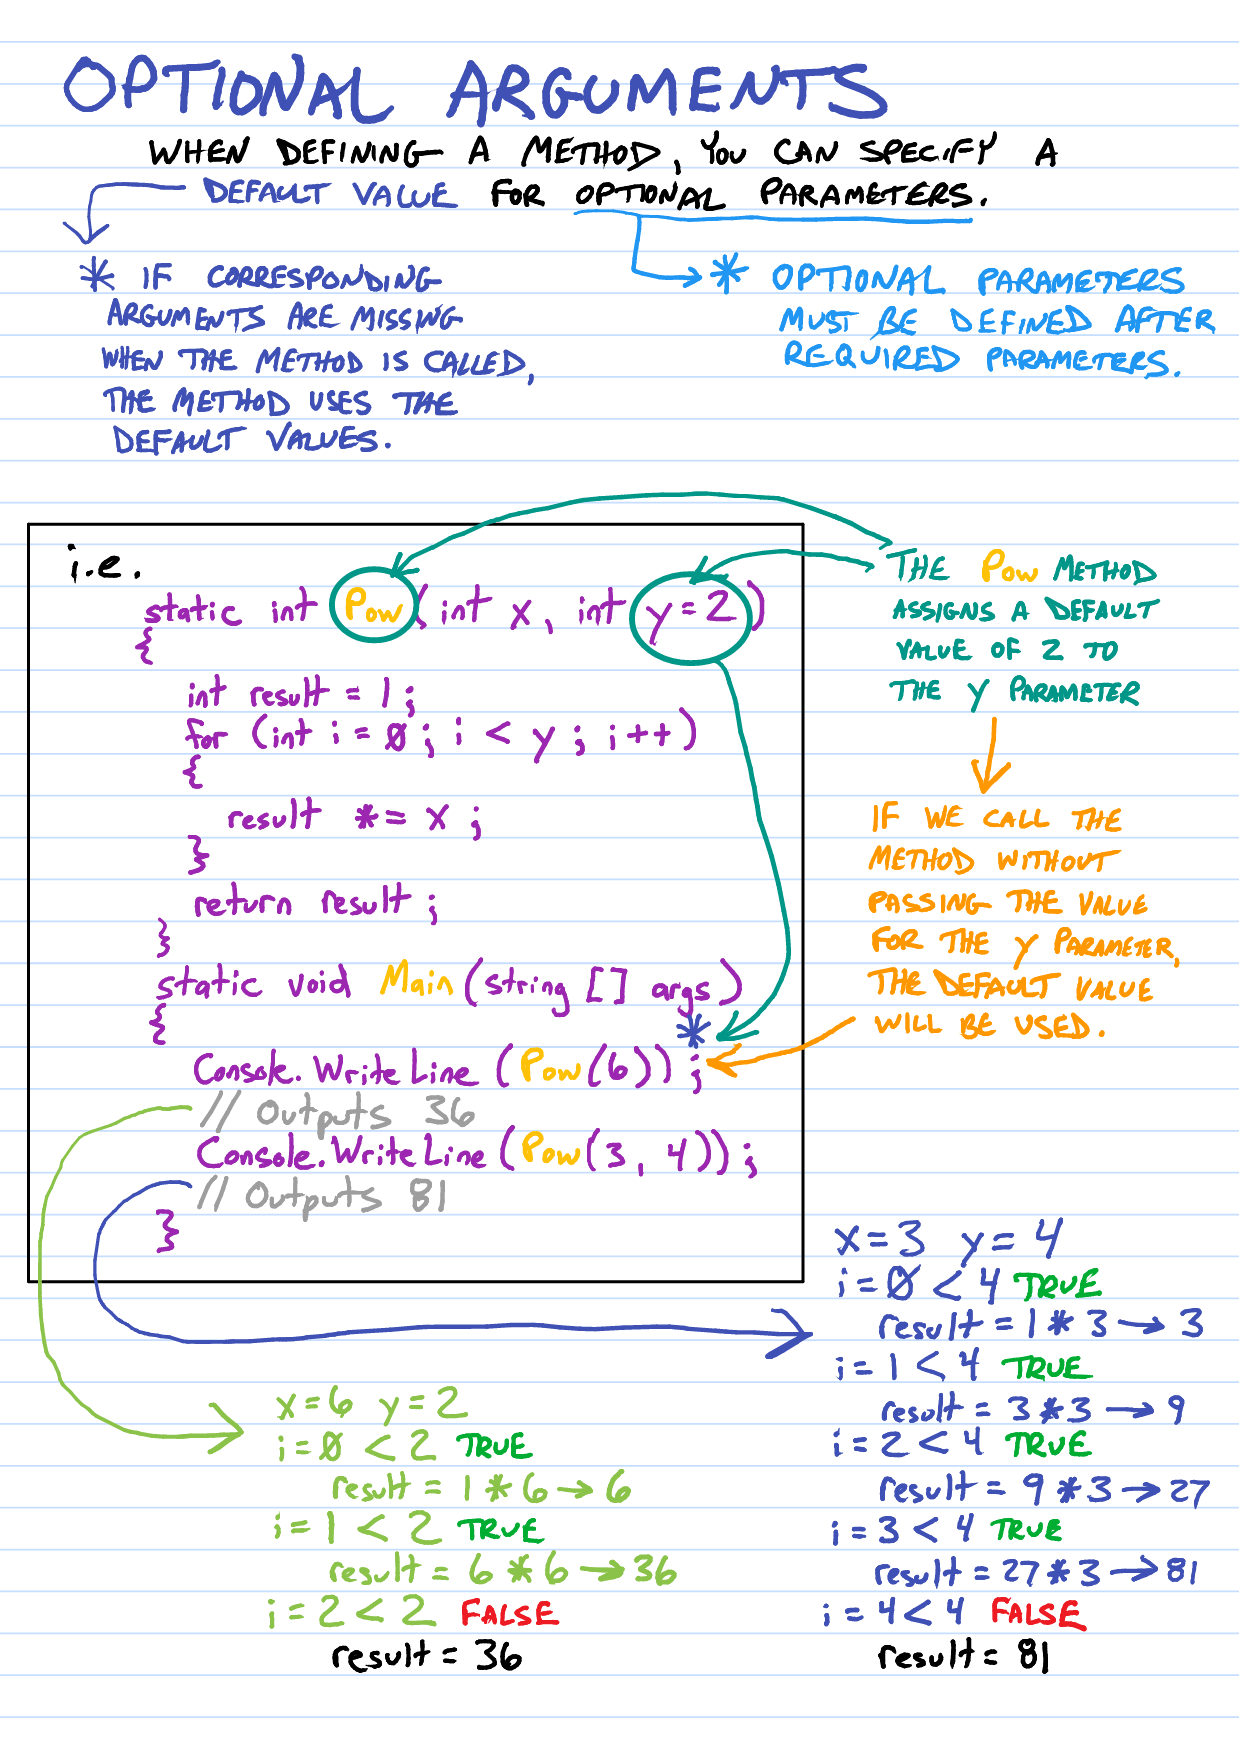 OPTIONAL ARGUMENTS
WHEN DEFINING A METHOD, YOU CAN SPECIFY A
DEFAULT VALUE FOR OPTIONAL PARAMETERS.
* IF CORRESPONDING
ARGUMENTS ARE MISSING
WHEN THE METHOD IS CALLED,
THE METHOD USES THE
DEFAULT VALUES.
* OPTIONAL PARAMETERS
MUST BE DEFINED AFTER
REQUIRED PARAMETERS.
i.e.
static int Pow (int x, int y=2)
{
int result = 1;
for (int i = 0; i < y; i++)
{
result *= x;
}
return result;
}
static void Main (string [] args)
{
*
Console.WriteLine (Pow(6));
// Outputs 36
Console.WriteLine (Pow(3, 4));
// Outputs 81
}
THE Pow METHOD
ASSIGNS A DEFAULT
VALUE OF 2 TO
THE Y PARAMETER
IF WE CALL THE
METHOD WITHOUT
PASSING THE VALUE
FOR THE Y PARAMETER,
THE DEFAULT VALUE
WILL BE USED.
x=6 y=2
i=0 < 2 TRUE
result = 1 * 6 → 6
i = 1 < 2 TRUE
result = 6 * 6 → 36
i = 2 < 2 FALSE
result = 36
x=3 y=4
i=0 < 4 TRUE
result = 1 * 3 → 3
i = 1 < 4 TRUE
result = 3 * 3 → 9
i = 2 < 4 TRUE
result = 9 * 3 → 27
i = 3 < 4 TRUE
result = 27 * 3 → 81
i = 4 < 4 FALSE
result = 81